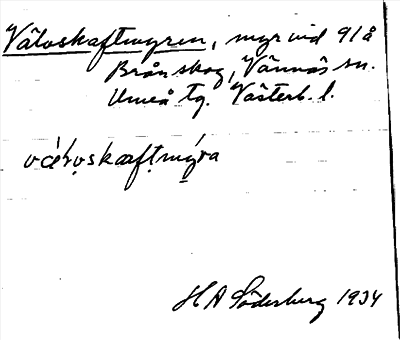 Våtoskaftmyren, myr vid 91å
Brånskog, Vännäs sn.
Umeå tg. Västerb. l.
H A Söderberg 1934